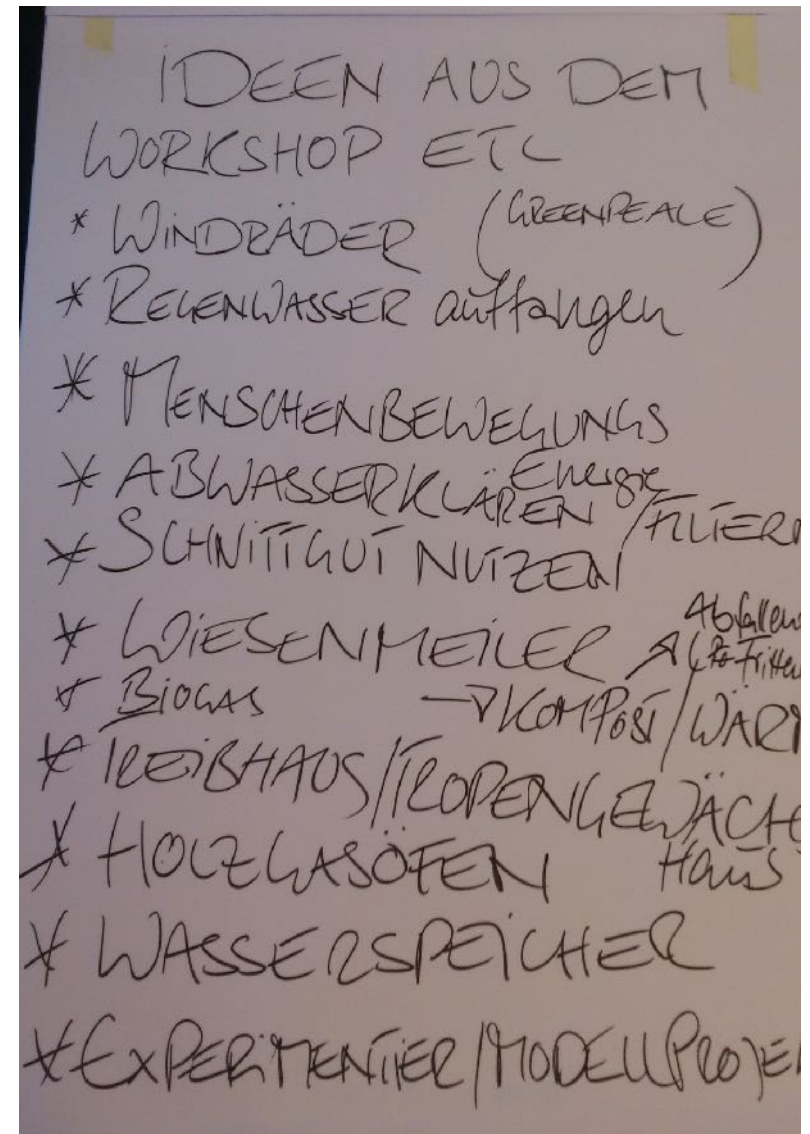 IDEEN AUS DEM
WORKSHOP ETC
* WINDRÄDER (GREENPEACE)
* REGENWASSER auffangen
* MENSCHENBEWEGUNGS
Energie
* ABWASSERKLÄREN / FILTERN
* SCHNITTGUT NUTZEN
* WIESENMEILER
* BIOGAS → KOMPOST / WÄRM
* TREIBHAUS / TROPENGEWÄCHS
Haus
* HOLZGASÖFEN
* WASSERSPEICHER
* EXPERIMENTIER / MODELLPROJEK